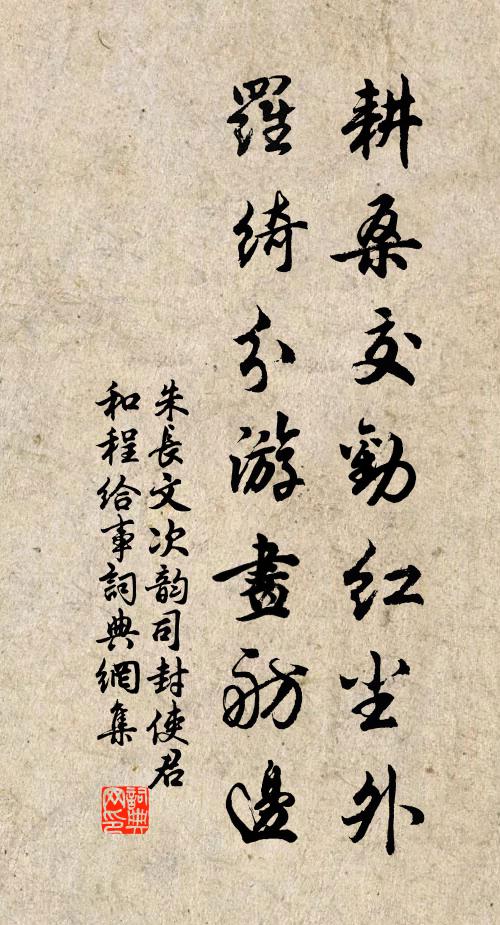 耕桑交勸红尘外
羅绮分游畫舫邊
朱長文次韵司封使君
和程给事詞典網集
詞典网印